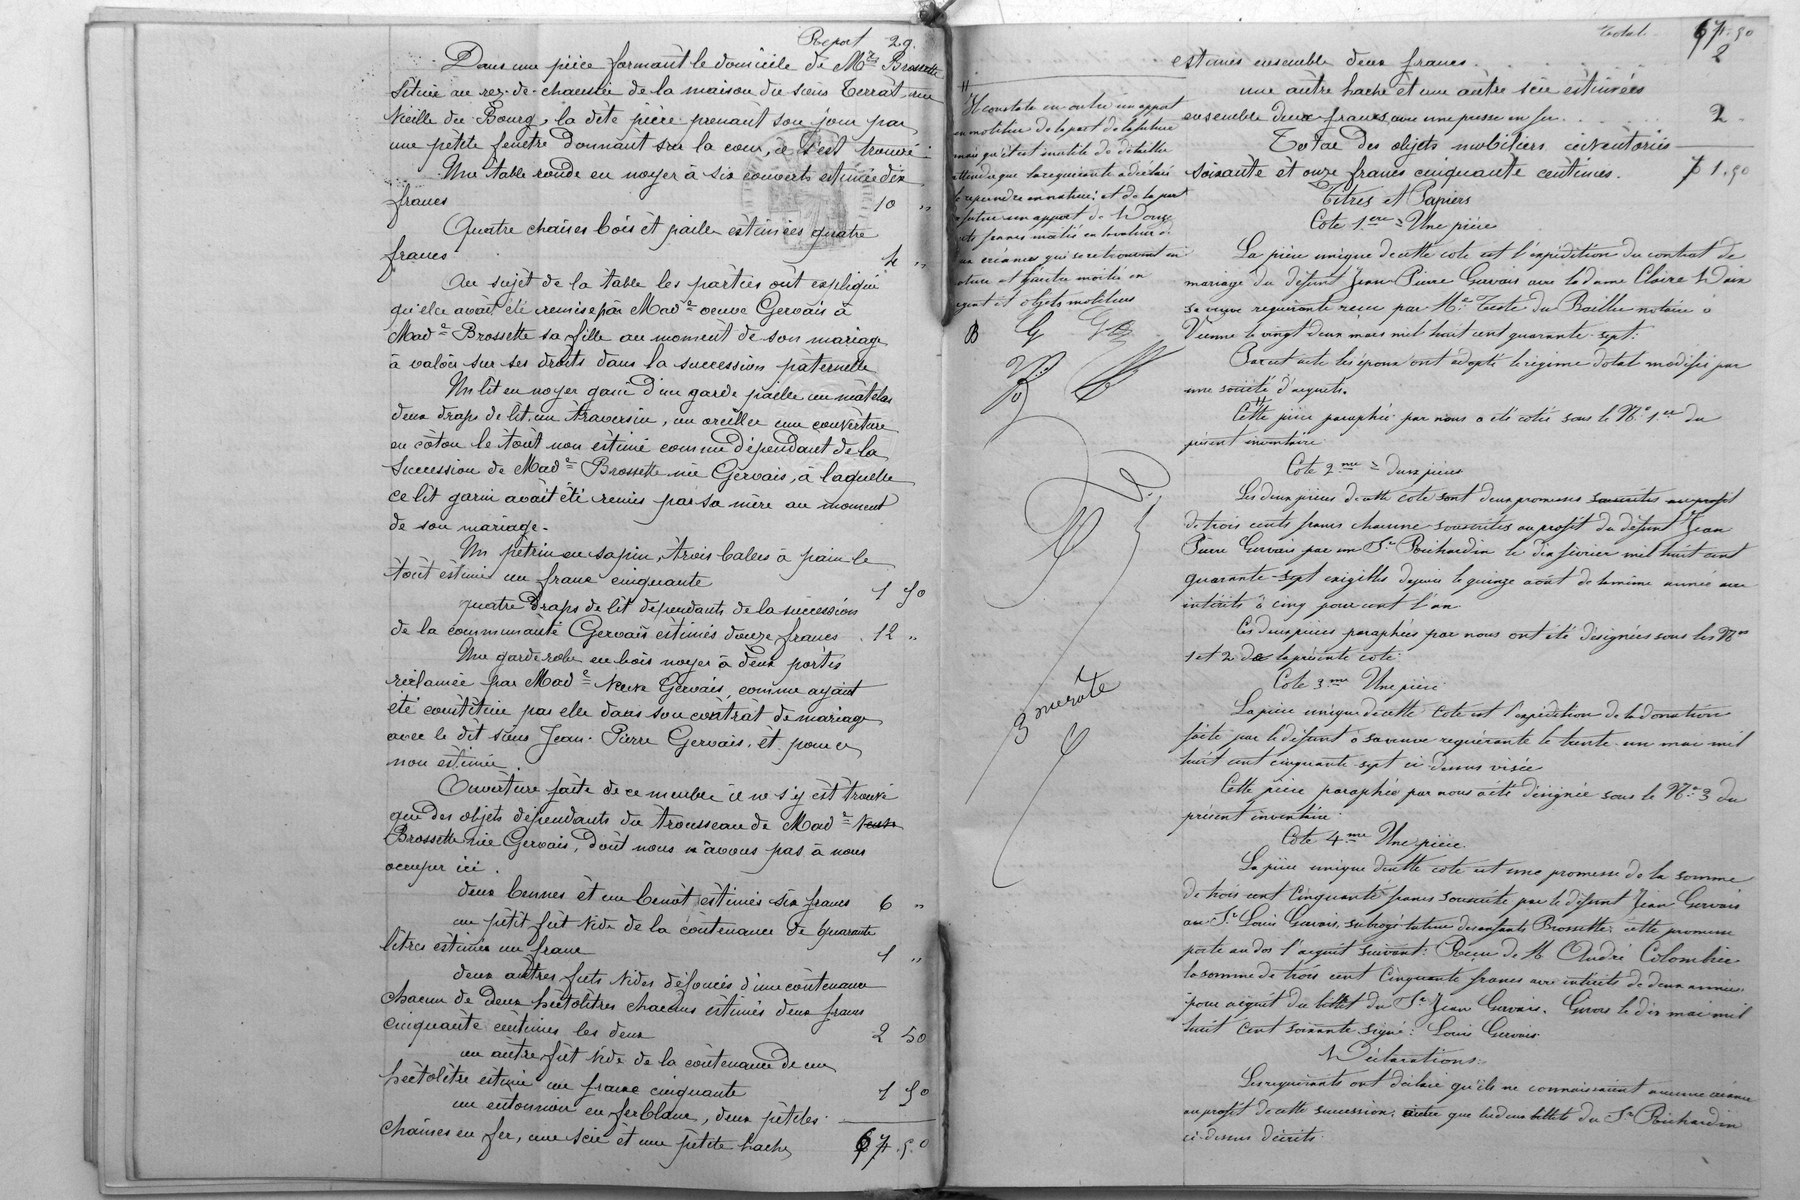 Report 29.
Dans une pièce formant le domicile de M.r Brossette
située au rez-de-chaussée de la maison du sieur Terrat rue
Vieille du Bourg, la dite pièce prenant son jour par
une petite fenêtre donnant sur la cour, il s'est trouvé
Une table ronde en noyer à six couverts estimée dix
francs 10 "
Quatre chaises bois et paille estimées quatre
francs 4 "
Au sujet de la table les parties ont expliqué
qu'elle avait été remise par Mad.e veuve Gervais à
Mad.e Brossette sa fille au moment de son mariage
à valoir sur ses droits dans la succession paternelle
Un lit en noyer garni d'un garde paille un matelas
deux draps de lit un traversin, un oreiller une couverture
en coton le tout non estimé comme dépendant de la
succession de Mad.e Brossette née Gervais, à laquelle
ce lit garni avait été remis par sa mère au moment
de son mariage.
Un pétrin en sapin, trois baless à pain le
tout estimé un franc cinquante 1 50
quatre draps de lit dépendants de la succession
de la communauté Gervais estimés douze francs 12 "
Une garde robe en bois noyer à deux portes
réclamée par Mad.e Veuve Gervais, comme ayant
été constituée par elle dans son contrat de mariage
avec le dit sieur Jean-Pierre Gervais, et pour ce
non estimée.
Ouverture faite de ce meuble il ne s'y est trouvé
que des objets dépendants du trousseau de Mad.e Veuve
Brossette née Gervais, dont nous n'avons pas à nous
occuper ici.
deux bennes et un benot, estimés six francs 6 "
un petit fût vide de la contenance de quarante
litres estimé un franc 1 "
deux autres futs vides défoncés d'une contenance
chacun de deux hectolitres chacuns estimés deux francs
cinquante centimes les deux 2 50
un autre fût vide de la contenance de un
hectolitre estimé un franc cinquante 1 50
un entonnoir en fer blanc, deux petites
chaises en fer, une scie et une petite hache 67.50
Total 67.50
estimés ensemble deux francs 2
une autre hache et une autre scie estimées
ensemble deux francs avec une presse en fer 2
Total des objets mobiliers inventoriés
soixante et onze francs cinquante centimes. 71.50
Titres et Papiers
Cote 1.ère = Une pièce
La pièce unique de cette cote est l'expédition du contrat de
mariage du défunt Jean Pierre Gervais avec la dame Claire
sa veuve requérante reçu par M.e Teste du Bailler notaire à
Vienne le vingt deux mars mil huit cent quarante-sept.
Par cet acte les époux ont adopté le régime dotal modifié par
une société d'acquets.
Cette pièce paraphée par nous a été cotée sous le N.o 1.er du
présent inventaire
Cote 2.me = deux pièces
Les deux pièces de cette cote sont deux promesses souscrites au profit
de trois cents francs chacune souscrites au profit du défunt Jean
Pierre Gervais par un S.r Richardin le dix février mil huit cent
quarante-sept exigibles depuis le quinze août de la même année avec
intérêts à cinq pour cent l'an
Ces deux pièces paraphées par nous ont été désignées sous les N.os
1 et 2 de la présente cote.
Cote 3.me Une pièce
La pièce unique de cette cote est l'expédition de la donation
faite par le défunt à sa veuve requérante le trente-un mai mil
huit cent cinquante-sept ci-dessus visée
Cette pièce paraphée par nous a été désignée sous le N.o 3 du
présent inventaire.
Cote 4.me Une pièce.
La pièce unique de cette cote est une promesse de la somme
de trois cent cinquante francs souscrite par le défunt Jean Gervais
au S.r Louis Gervais, subrogé tuteur des enfants Brossette; cette promesse
porte au dos l'acquit suivant: Reçu de M. André Colombier
la somme de trois cent cinquante francs avec intérêts de deux années
pour acquit du billet du S.r Jean Gervais. Givors le dix mai mil
huit cent soixante. signé: Louis Gervais
Déclarations.
Les requérants ont déclaré qu'ils ne connaissaient aucune créance
au profit de cette succession, autre que les deux billets du S.r Richardin
ci-dessus décrits.
Il constate en outre un apport
en mobilier de la part de la future
mais qu'il est inutile de détailler
attendu que la requérante a déclaré
le reprendre en nature; et de la part
du futur un apport de Douze
cents francs moitié en
créances qui se retrouvent en
nature et l'autre moitié en
argent et objets mobiliers
B G
3 me rôle